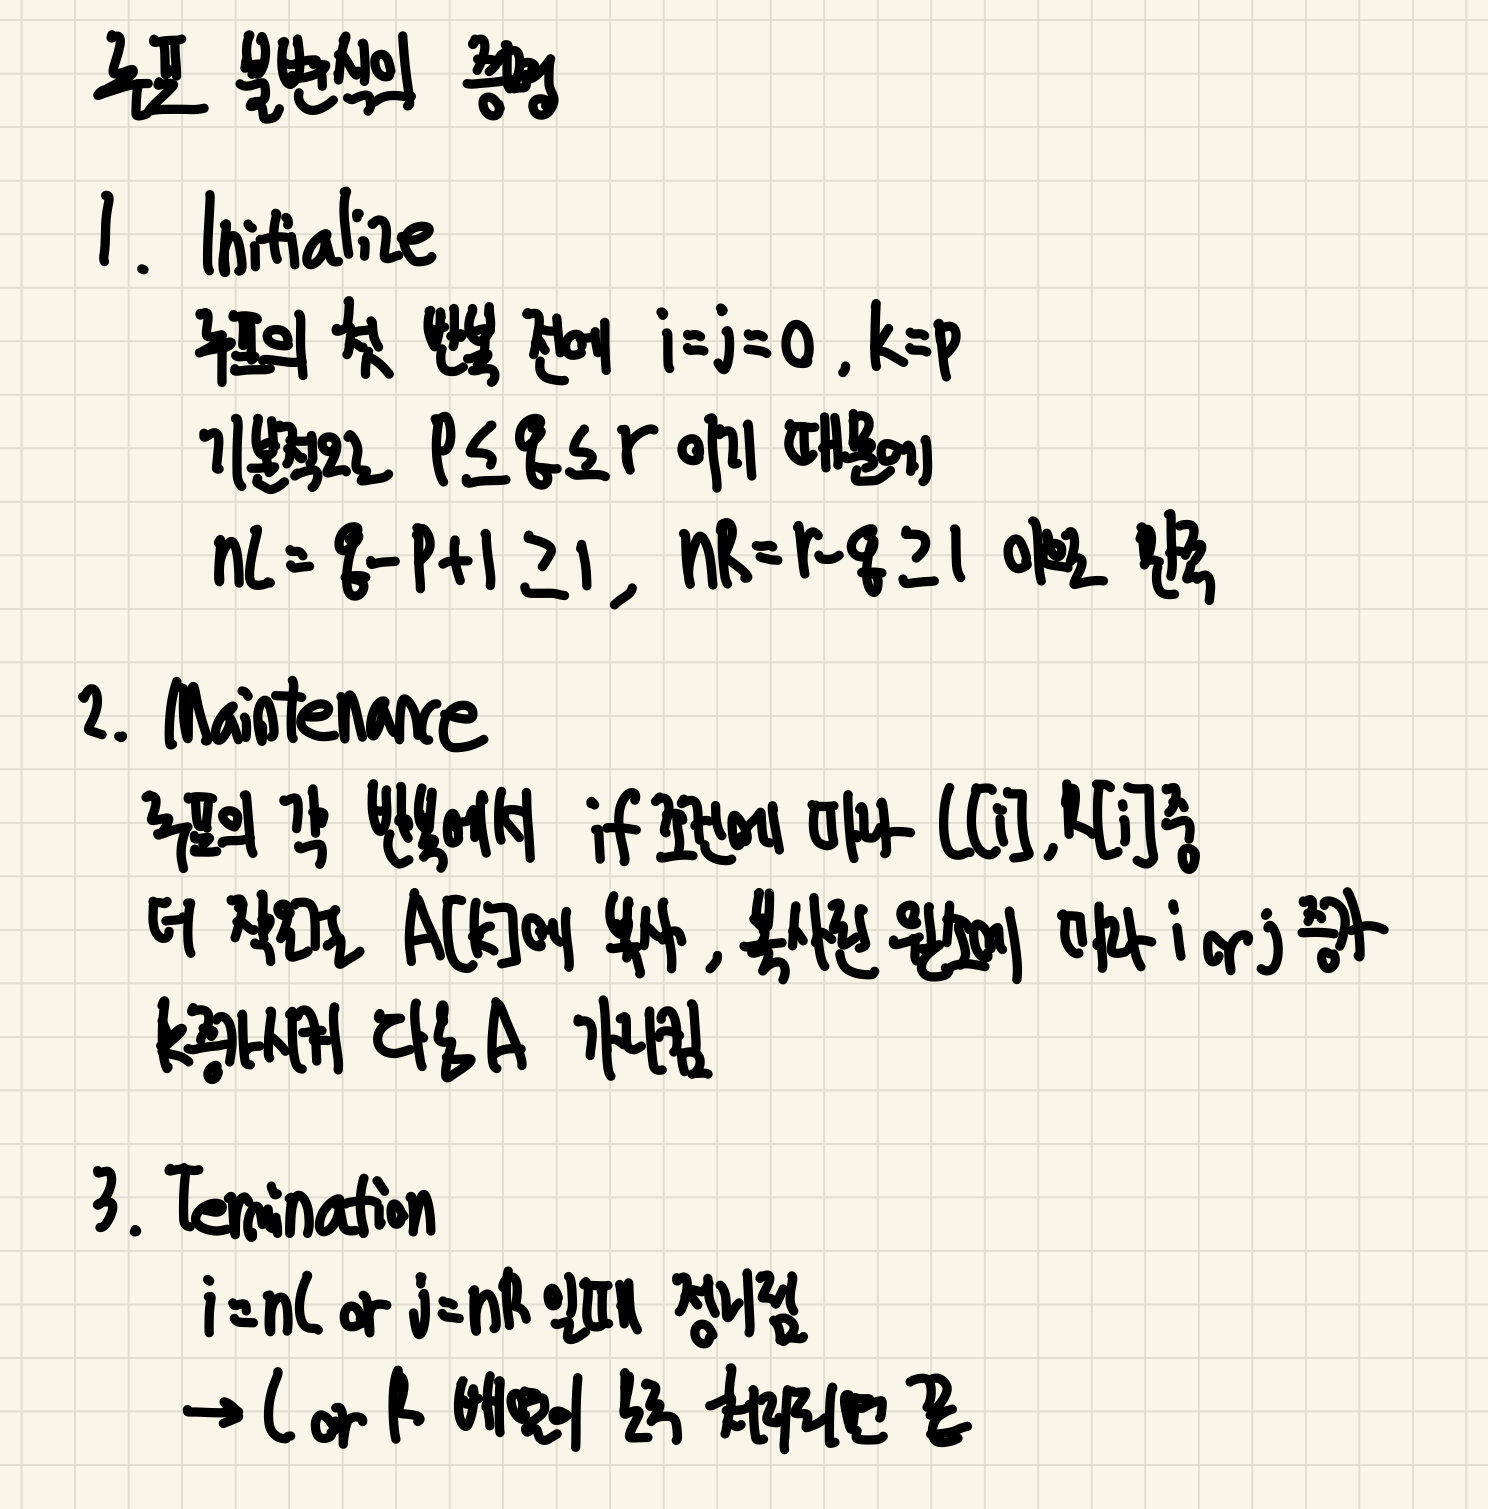 루프 불변식의 증명
1. Initialize
루프의 첫 반복 전에 i=j=0, k=p
기본적으로 p≤q≤r 이기 때문에
nL = q-p+1 ≥1, nR=r-q≥1 이므로 만족
2. Maintenance
루프의 각 반복에서 if 조건에 따라 L[i], R[j]중
더 작은걸로 A[k]에 복사, 복사된 원소에 따라 i or j 증가
k증가시켜 다음 A 가리킴
3. Termination
i=nL or j=nR 일때 정지됨
→ L or R 배열이 모두 처리되면 끝